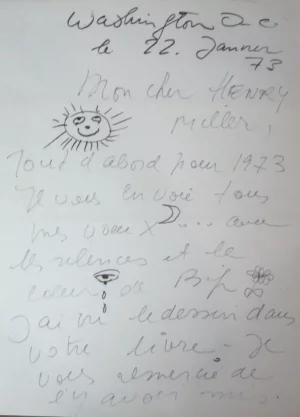 Washington D.C
le 22. Janvier
73
Mon cher HENRY
Miller,
Tout d'abord pour 1973
Je vous envoie tous
mes voeux ... avec
les silences et le
coeur de Bip
J'ai vu le dessin dans
votre livre - Je
vous remercie de
l'y avoir mis.